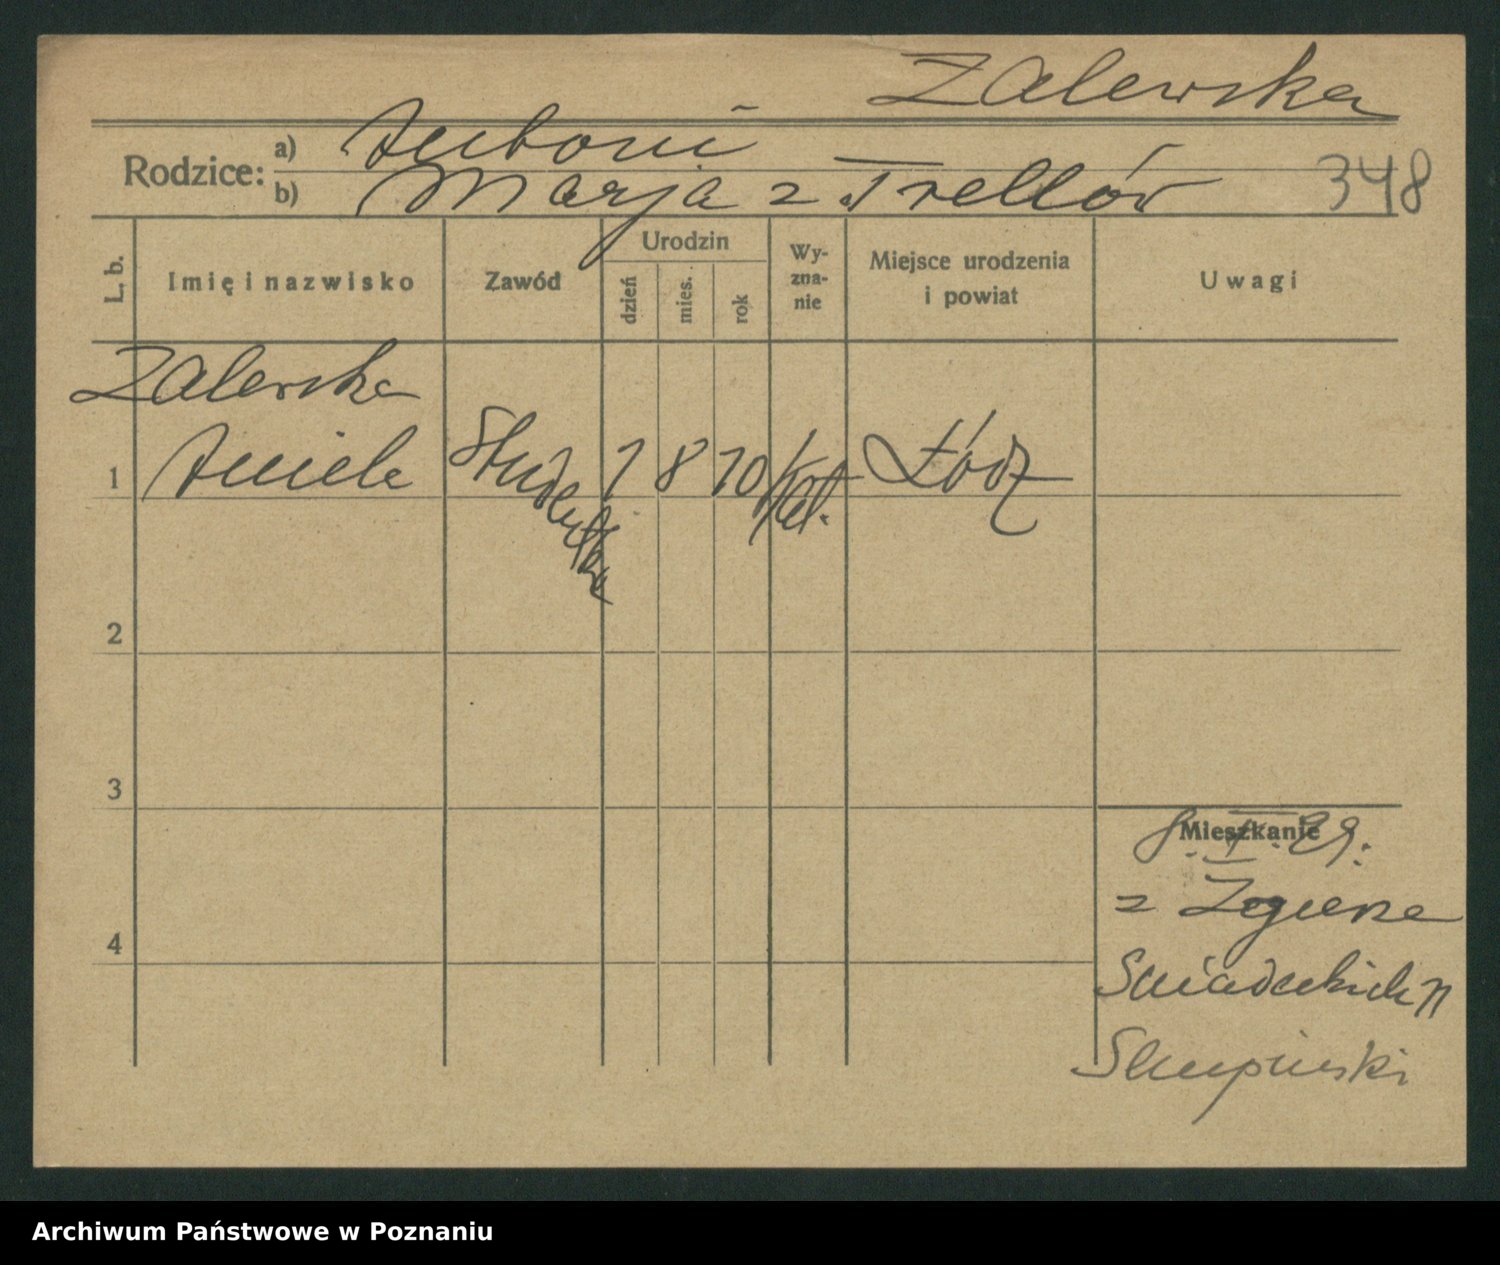 Zalewska
Rodzice: a) Antoni
b) Marja z Trellów
348
L. b.
Imię i nazwisko
Zawód
Urodzin
dzień
mies.
rok
Wy-
zna-
nie
Miejsce urodzenia
i powiat
Uwagi
Zalewska
1 Aniela Studentka 7 8 10 kat. Łódz
2
3
4
Mieszkanie
z Zgierza
Sniadeckich
Słupinski
Archiwum Państwowe w Poznaniu